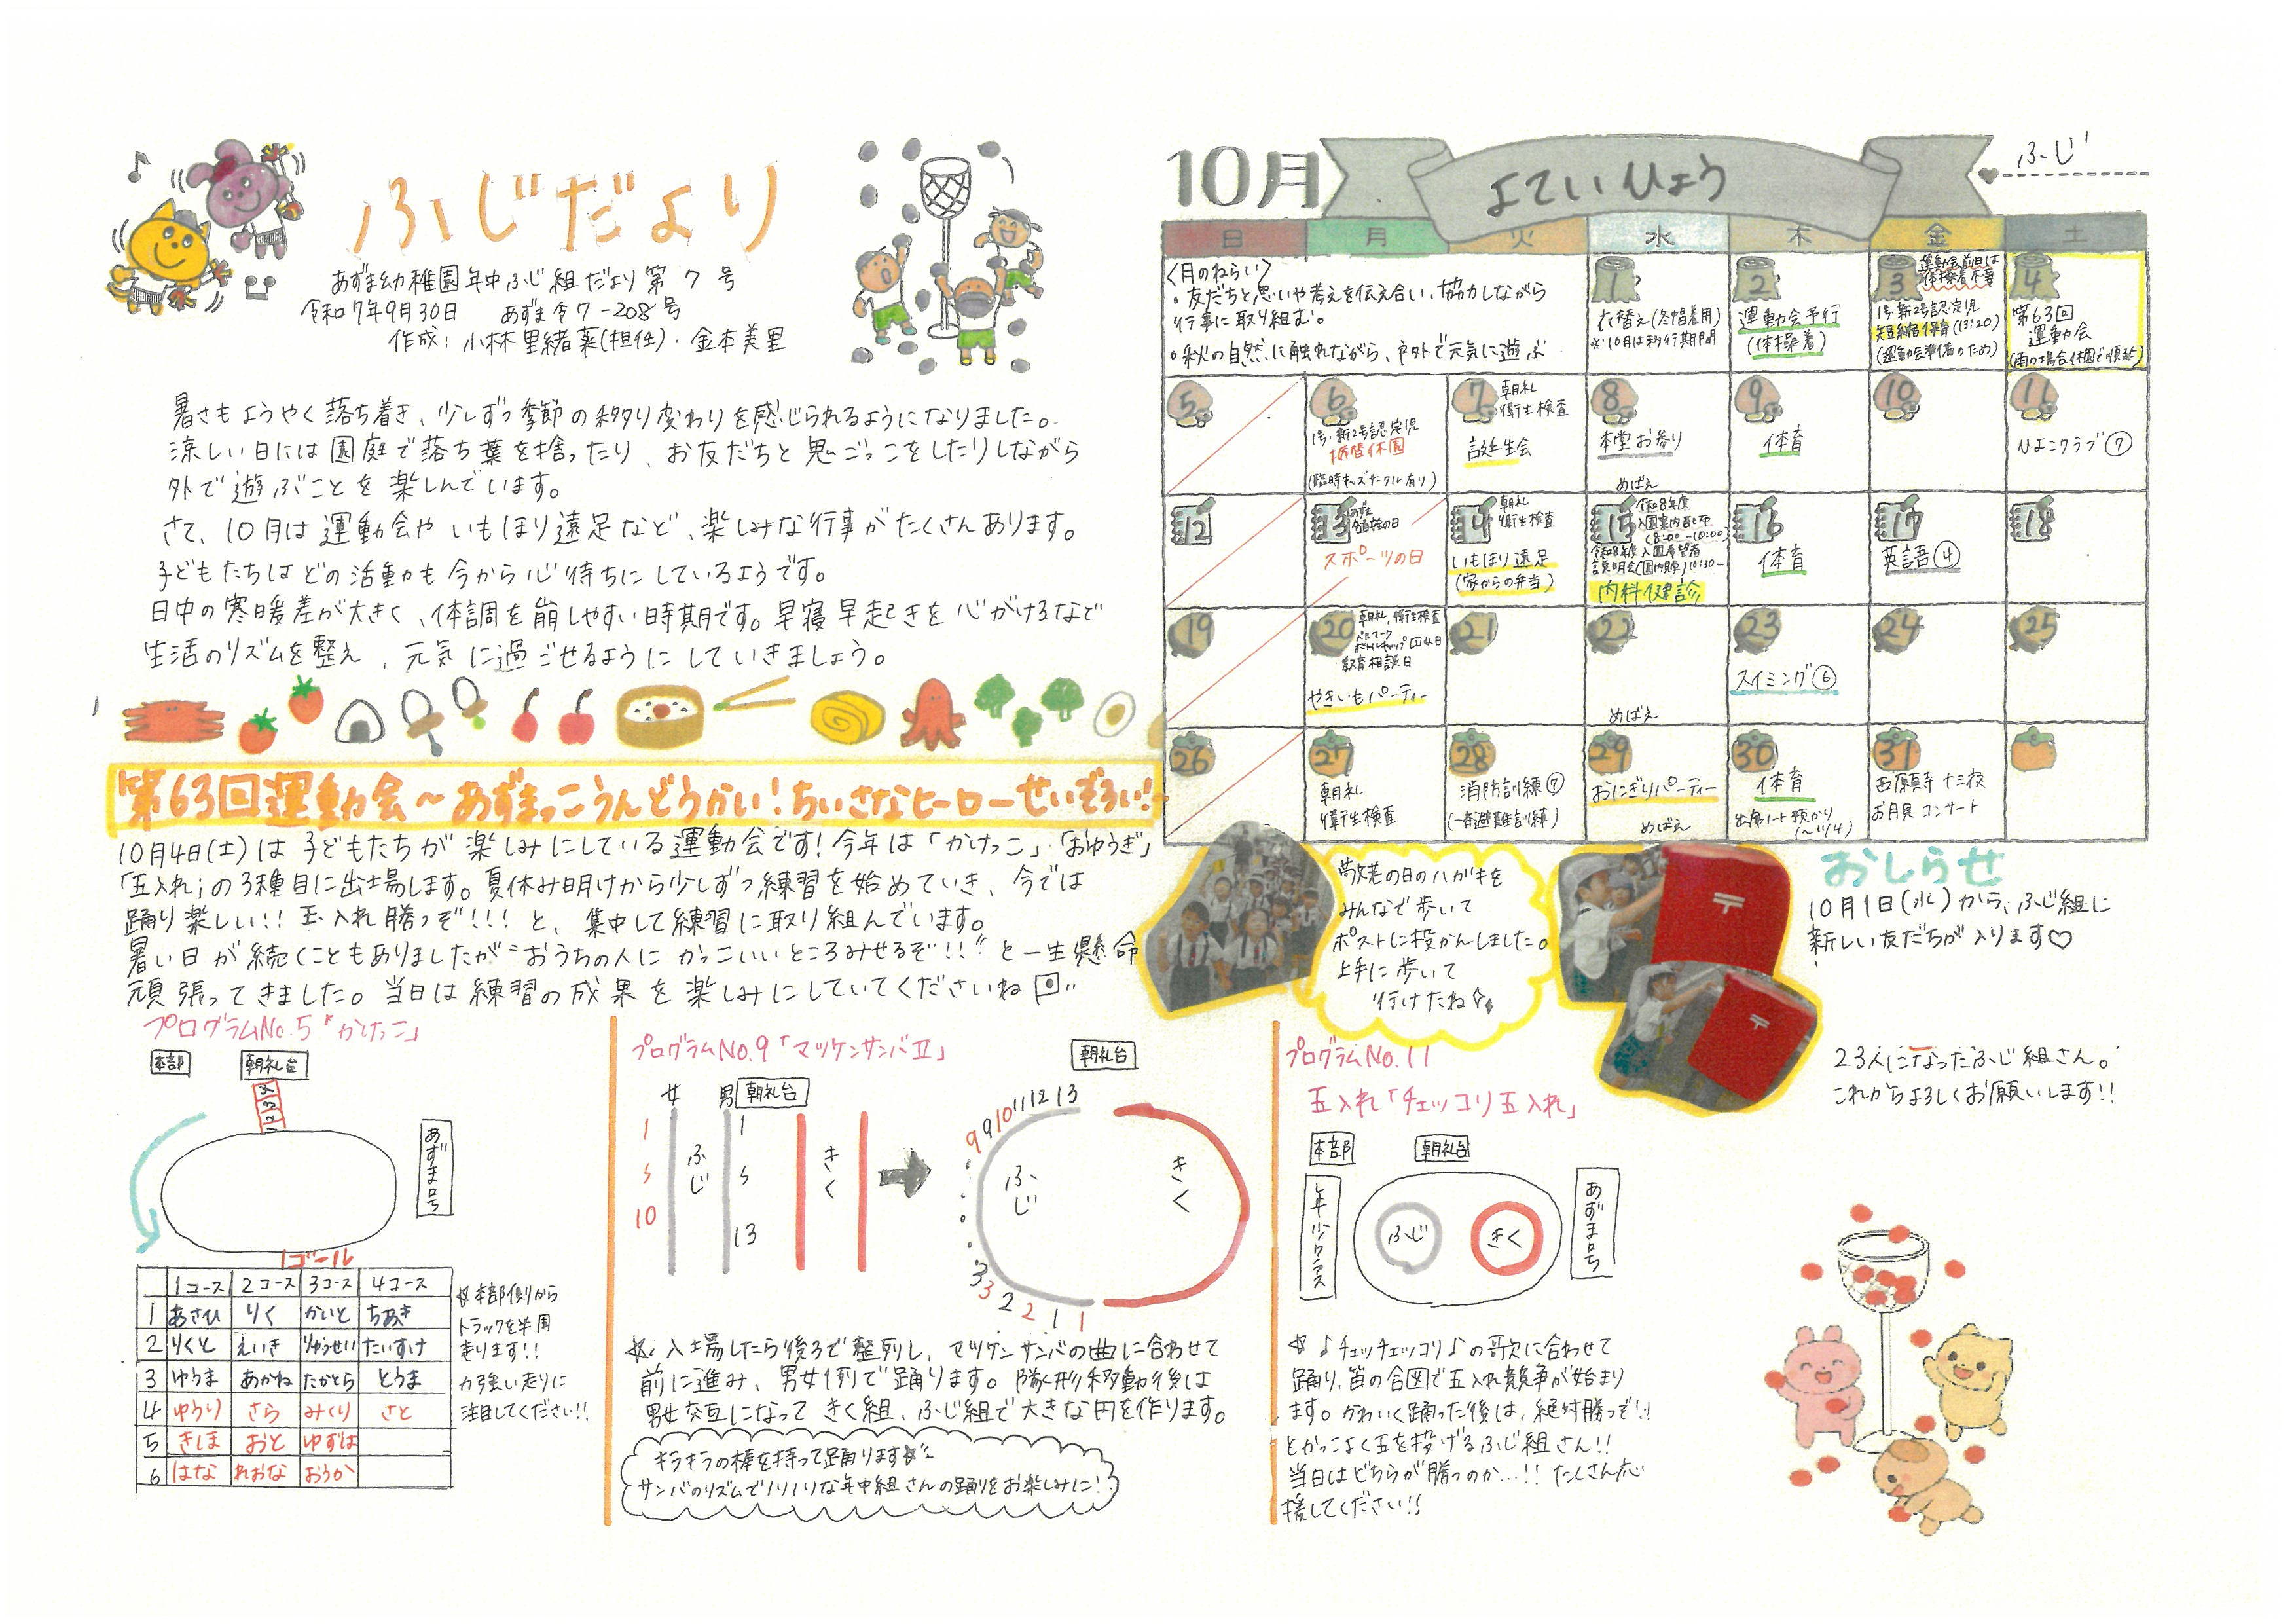 ふじだより
あずま幼稚園年中ふじ組だより第7号
令和7年9月30日 あずま令7-208号
作成：小林里緒菜(担任)・金本美里
暑さもようやく落ち着き、少しずつ季節の移り変わりを感じられるようになりました。
涼しい日には園庭で落ち葉を捨ったり、お友だちと鬼ごっこをしたりしながら
外で遊ぶことを楽しんでいます。
さて、10月は運動会やいもほり遠足など、楽しみな行事がたくさんあります。
子どもたちはどの活動も今から心待ちにしているようです。
日中の寒暖差が大きく、体調を崩しやすい時期です。早寝早起きを心がけるなど
生活のリズムを整え、元気に過ごせるようにしていきましょう。
第63回運動会～あずまっこうんどうかい！ちいさなヒーローせいぞろい！～
10月4日(土)は子どもたちが楽しみにしている運動会です！今年は「かけっこ」「おゆうぎ」
「玉入れ」の3種目に出場します。夏休み明けから少しずつ練習を始めていき、今では
踊り楽しい!! 玉入れ勝つぞ!!! と、集中して練習に取り組んでいます。
暑い日が続くこともありましたが"おうちの人にかっこいいところみせるぞ!!"と一生懸命
頑張ってきました。当日は練習の成果を楽しみにしていてくださいね
プログラムNo.5「かけっこ」
本部 朝礼台
1 2 3 4
あずま号
ゴール
1コース 2コース 3コース 4コース
1 あさひ りく かいと ちあき
2 りくと えいき りゅうせい たいすけ
3 ゆうま あかね たかとら とうま
4 ゆうり さら みくり さと
5 きほ おと ゆずは
6 はな れおな おうか
☆本部側から
トラックを半周
走ります!!
力強い走りに
注目してください!!
プログラムNo.9「マツケンサンバⅡ」
女 男 朝礼台
1 ふじ 1 きく
10 13
朝礼台
9 9 10 11 12 13
ふじ きく
3 3 2 2 1 1
☆入場したら後ろで整列し、マツケンサンバの曲に合わせて
前に進み、男女1列で踊ります。隊形移動後は
男女交互になってきく組、ふじ組で大きな円を作ります。
キラキラの棒を持って踊ります☆
サンバのリズムでノリノリな年中組さんの踊りをお楽しみに！
プログラムNo.11
玉入れ「チェッコリ玉入れ」
本部 朝礼台
年少クラス ふじ きく あずま号
☆♪チェッチェッコリ♪の歌に合わせて
踊り、笛の合図で玉入れ競争が始まり
ます。かわいく踊った後は、絶対勝つぞ!!
とかっこよく玉を投げるふじ組さん!!
当日はどちらが勝つのか…!! たくさん応
援してください!!
10月 よていひょう ふじ
日 月 火 水 木 金 土
〈月のねらい〉
。友だちと思いや考えを伝え合い、協力しながら
行事に取り組む。
。秋の自然に触れながら、戸外で元気に遊ぶ
1
衣替え(冬帽着用)
※10月は移行期間
2
運動会予行
(体操着)
3 運動会前日は
体操着不要
1号・新2号認定児
短縮保育(13:20)
(運動会準備のため)
4
第63回
運動会
(雨の場合休園で順延)
5
6
1号・新2号認定児
振替休園
(臨時キッズたクル有り)
7 朝礼
衛生検査
誕生会
8
本堂お参り
めばえ
9
体育
10
11
ひよこクラブ⑦
12
13
スポーツの日
14 朝礼
衛生検査
いもほり遠足
(家からの弁当)
15 令和8年度
入園案内配布
(8:00-10:00)
令和8年度入園希望者
説明会(園内見学)10:30～
内科健診
16
体育
17
英語④
18
19
20 朝礼、衛生検査
ベルマーク
ボトルキャップ回収日
教育相談日
やきいもパーティー
21
22
めばえ
23
スイミング⑥
24
25
26
27
朝礼
衛生検査
28
消防訓練⑦
(一斉避難訓練)
29
おにぎりパーティー
めばえ
30
体育
出席ノート預かり
(～11/4)
31
西願寺 十三夜
お月見コンサート
敬老の日のハガキを
みんなで歩いて
ポストに投かんしました。
上手に歩いて
行けたね
おしらせ
10月1日(水)から、ふじ組に
新しい友だちが入ります♡
23人になったふじ組さん。
これからよろしくお願いします!!